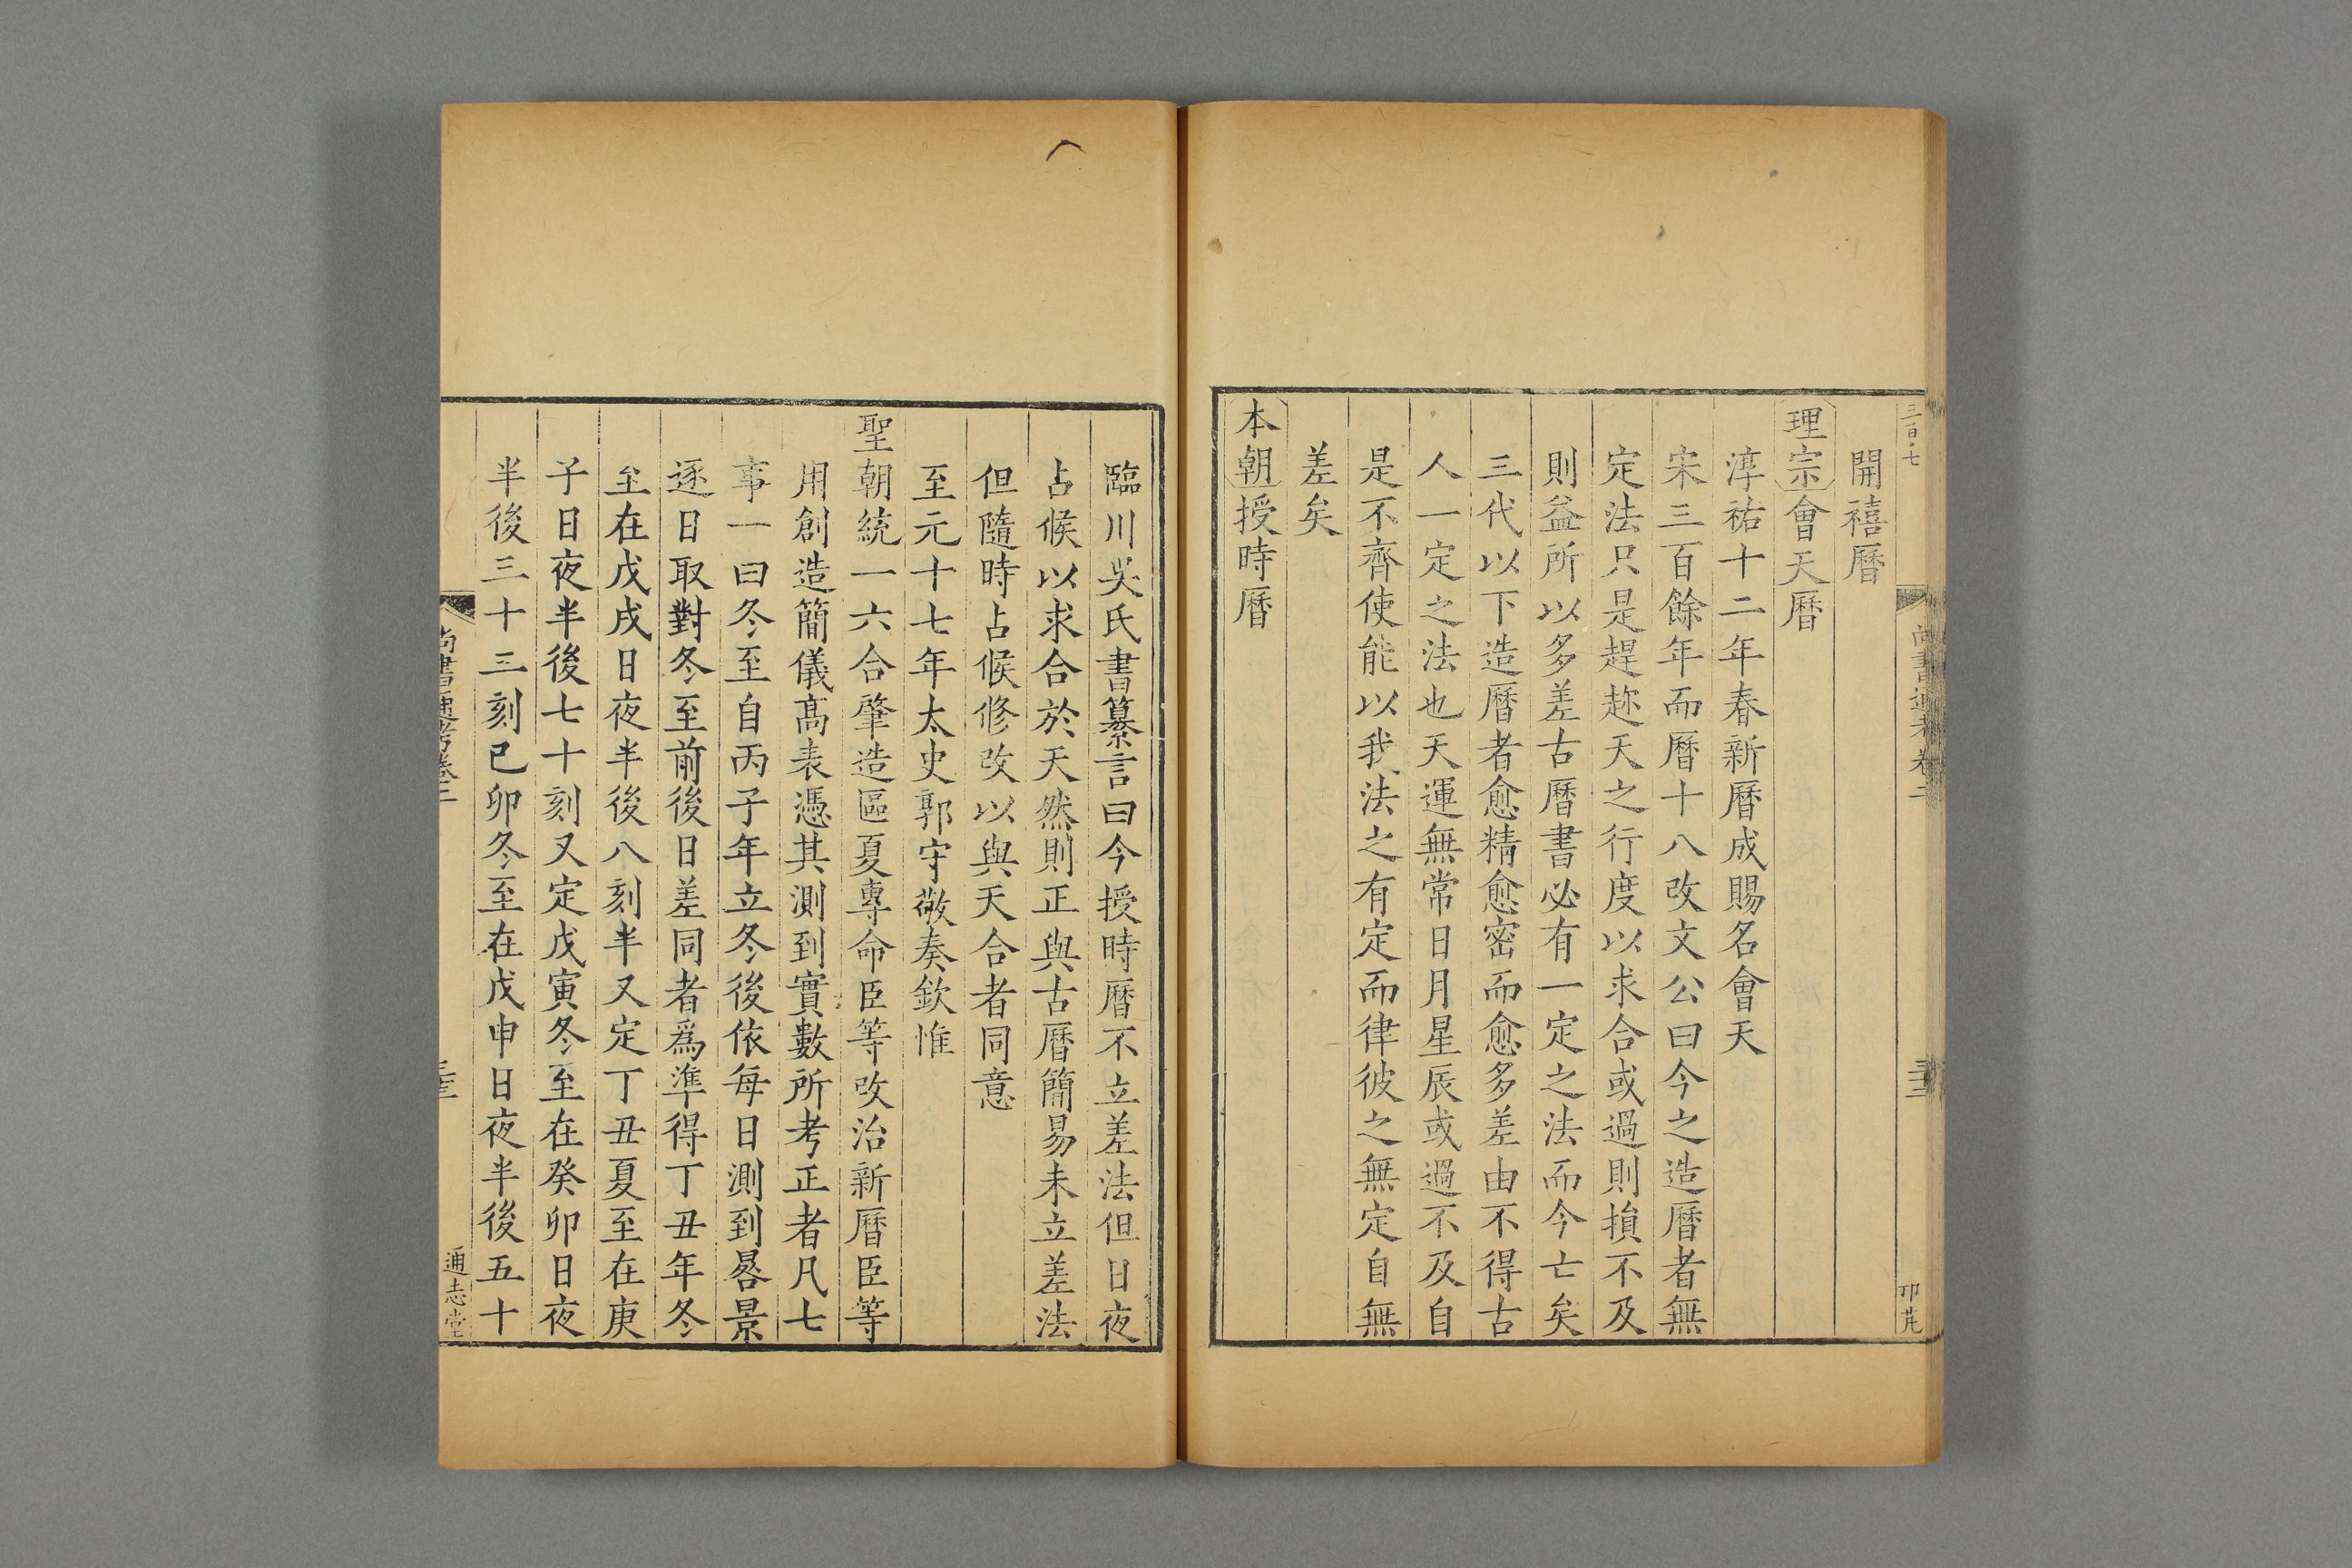 三百七
尚書通考卷二
開禧曆
理宗會天曆
淳祐十二年春新曆成賜名會天
宋三百餘年而曆十八改文公曰今之造曆者無
定法只是趕趂天之行度以求合或過則損不及
則益所以多差古曆書必有一定之法而今亡矣
三代以下造曆者愈精愈密而愈多差由不得古
人一定之法也天運無常日月星辰或過不及自
是不齊使能以我法之有定而律彼之無定自無
差矣
本朝授時曆
臨川吳氏書纂言曰今授時曆不立差法但日夜
占候以求合於天然則正與古曆簡易未立差法
但隨時占候修改以與天合者同意
至元十七年太史郭守敬奏欽惟
聖朝統一六合肇造區夏專命臣等改治新曆臣等
用創造簡儀高表憑其測到實數所考正者凡七
事一曰冬至自丙子年立冬後依每日測到晷景
逐日取對冬至前後日差同者爲準得丁丑年冬
至在戊戌日夜半後八刻半又定丁丑夏至在庚
子日夜半後七十刻又定戊寅冬至在癸卯日夜
半後三十三刻己卯冬至在戊申日夜半後五十
尚書通考卷二
通志堂